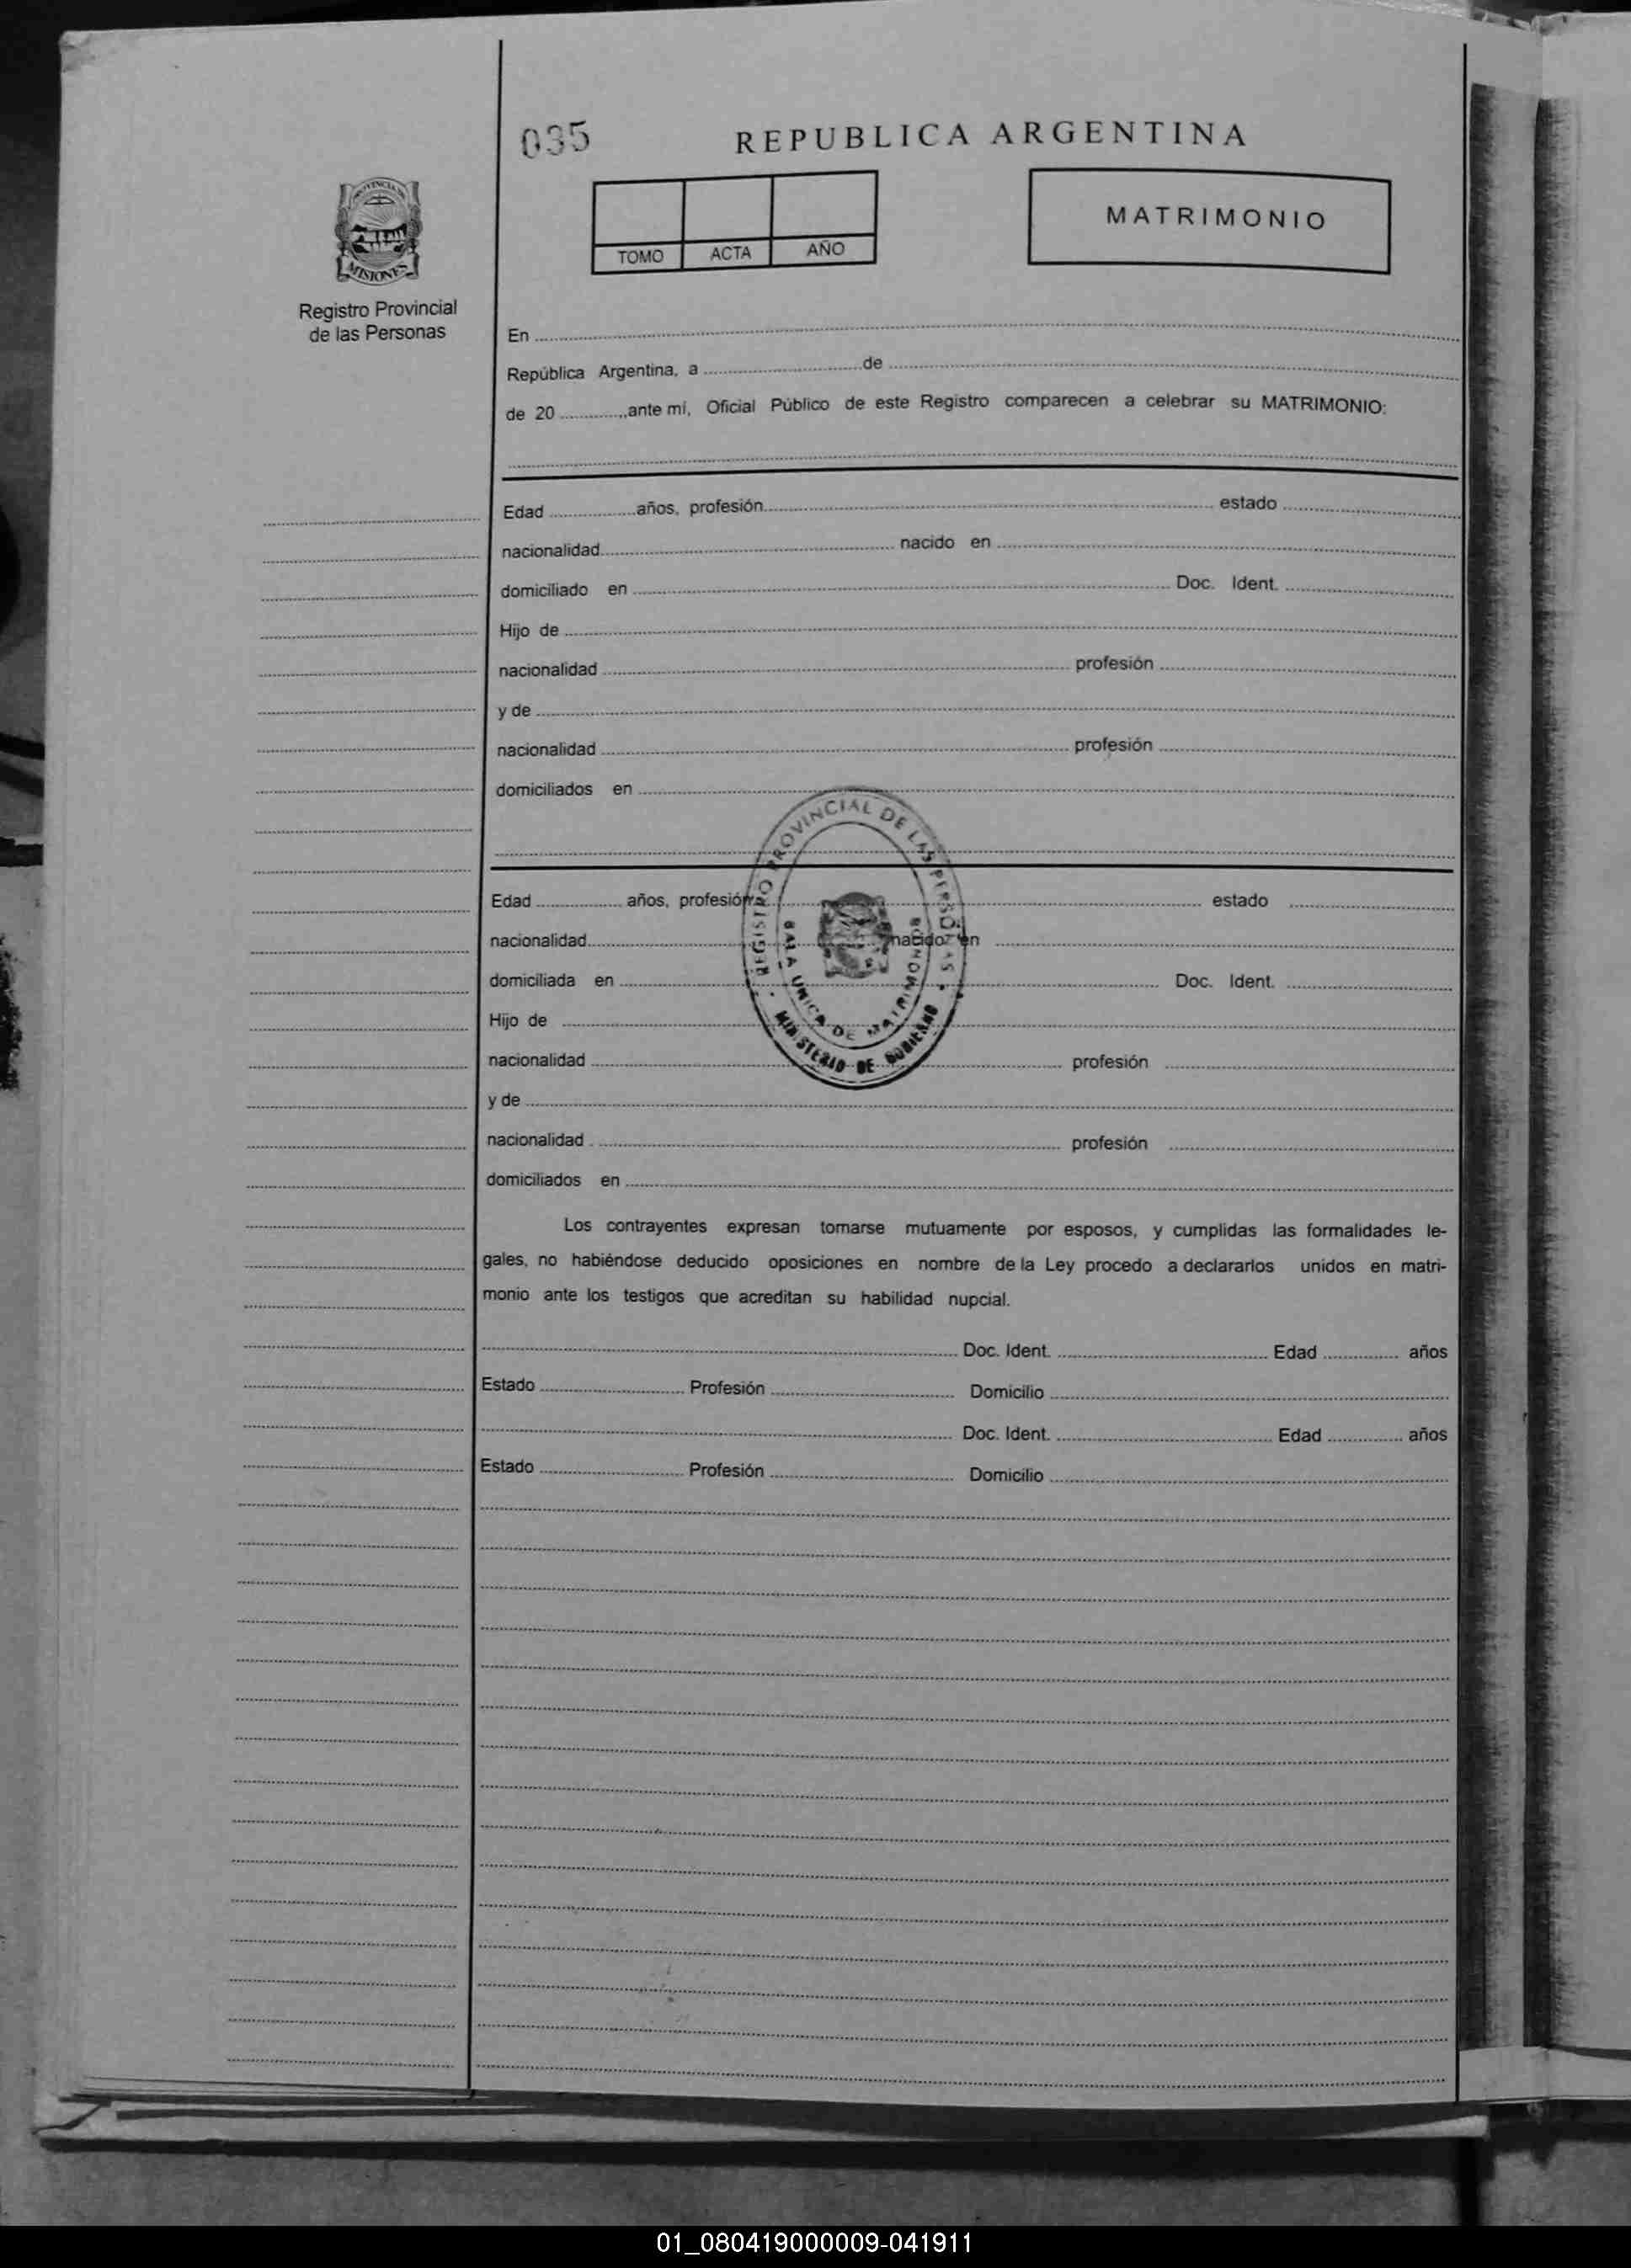 035
REPUBLICA ARGENTINA
MATRIMONIO
TOMO ACTA AÑO
PROVINCIA DE
MISIONES
Registro Provincial
de las Personas
En
República Argentina, a de
de 20 ante mí, Oficial Público de este Registro comparecen a celebrar su MATRIMONIO:
Edad años, profesión estado
nacionalidad nacido en
domiciliado en Doc. Ident.
Hijo de
nacionalidad profesión
y de
nacionalidad profesión
domiciliados en
REGISTRO PROVINCIAL DE LAS PERSONAS
SALA UNICA DE MATRIMONIOS
MINISTERIO DE GOBIERNO
Edad años, profesión estado
nacionalidad nacido en
domiciliada en Doc. Ident.
Hijo de
nacionalidad profesión
y de
nacionalidad profesión
domiciliados en
Los contrayentes expresan tomarse mutuamente por esposos, y cumplidas las formalidades le-
gales, no habiéndose deducido oposiciones en nombre de la Ley procedo a declararlos unidos en matri-
monio ante los testigos que acreditan su habilidad nupcial.
Doc. Ident. Edad años
Estado Profesión Domicilio
Doc. Ident. Edad años
Estado Profesión Domicilio
01_080419000009-041911